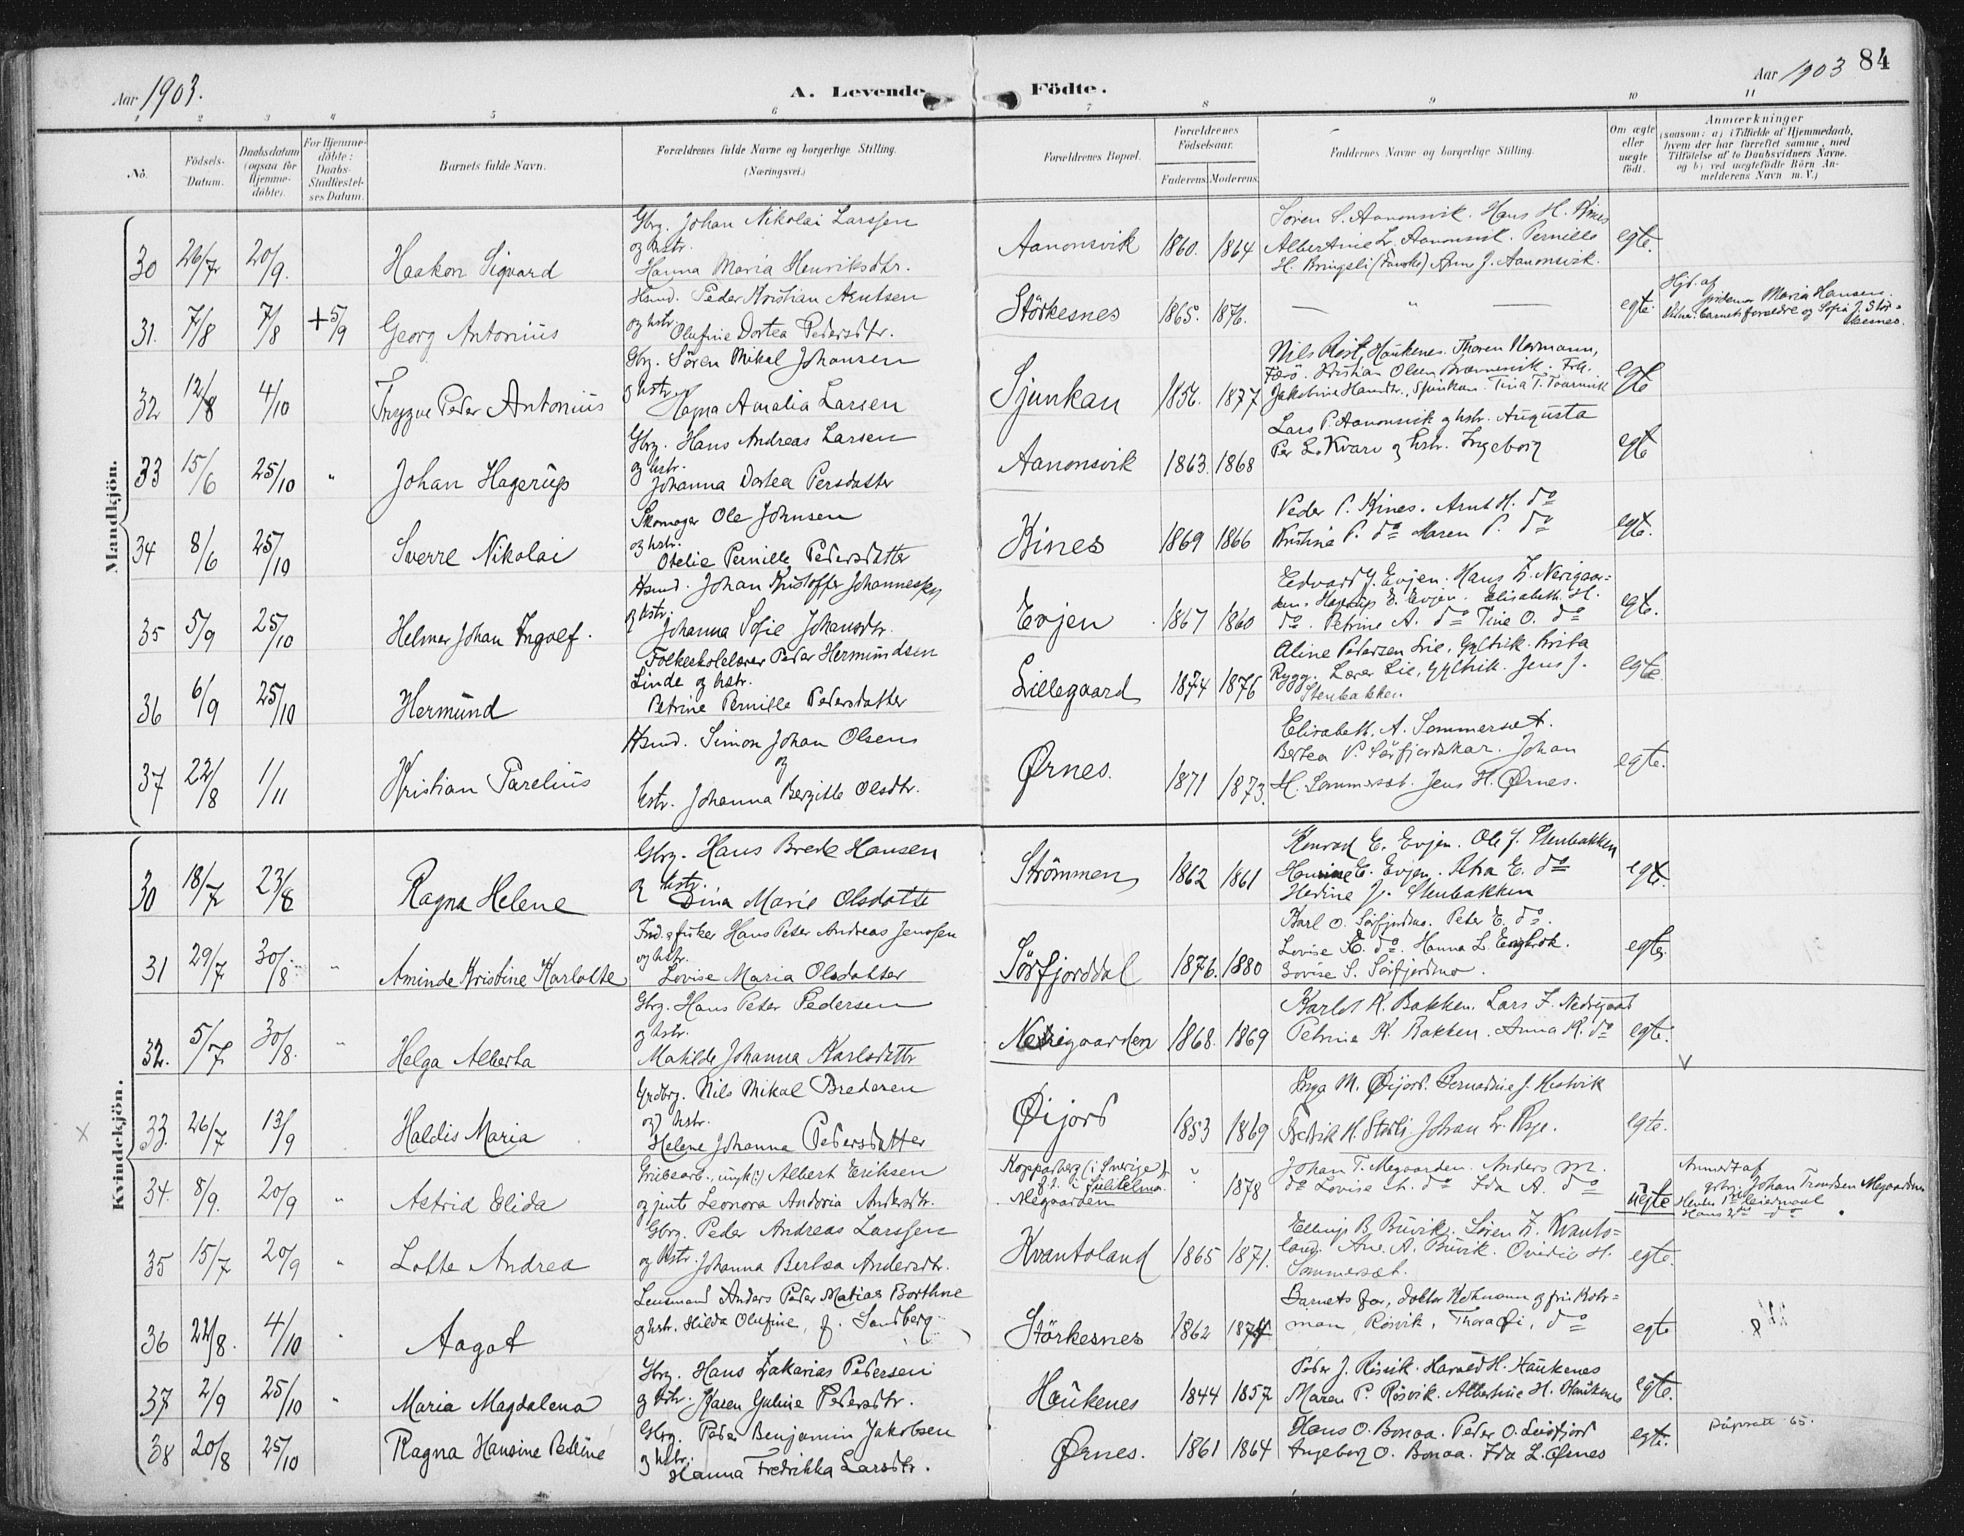 Aar 1903.
A. Levende Födte.
Aar 1903
84
1 2 3 4 5 6 7 8 9 10 11
No.
Födsels-Datum.
Daabsdatum (ogsaa for Hjemme-döbte).
For Hjemme-döbte: Daabs-Stadfæstel-ses Datum.
Barnets fulde Navn.
Forældrenes fulde Navne og borgerlige Stilling.
(Næringsvei.)
Forældrenes Bopæl.
Forældrenes Födselsaar.
Faderens. Moderens.
Faddernes Navne og borgerlige Stilling.
Om ægte eller uægte födt.
Anmærkninger
(saasom: a) i Tilfælde af Hjemmedaab, hvem der har forrettet samme, med Tilföielse af to Daabsvidners Navne. og b) ved uegtefödte Börn An-melderens Navn m. V.)
Mandkjön.
30 26/7 20/9. Haakon Sigvard
Gbrg. Johan Nikolai Larssen
og hstr.
Hanna Maria Henriksdtr.
Aanonsvik 1860. 1864
Sören S. Aanonsvik. Hans H. Kines
Albertine L. Aanonsvik. Pernille
H. Bringsli (Fauske) Arn J. Aanonsvik.
egte.
31. 7/8 7/8 + 5/9 Georg Antonius
Hsmd. Peder Kristian Arntsen
og hstr. Olufine Dortea Pedersdtr.
Störkesnes 1865. 1876. — " — egte.
Hjd. af
Maria Hansen.
barnets forældre og Sofia J. Stör-
kesnes.
32 12/8 4/10 Trygve Peder Antonius
Gbrg. Sören Mikal Johansen
og hstr.
Ragna Amalia Larsen
Sjunkan 1856. 1877
Nils Rost, Haukenes. Thoren Normann,
Færö. Kristian Olsen Bræmsvik. Frk.
Jakobine Hansdtr., Sjunkan. Tina T. Tournvik
egte
33 15/6 25/10 " Johan Hagerup
Gbrg. Hans Andreas Larsen
og hstr.
Johanna Dortea Persdatter
Aanonsvik 1863. 1868
Lars P. Aanonsvik og hstr. Augusta
Per L. Kvarv og hstr. Ingeborg
egte
34 8/6 25/10 Sverre Nikolai
Skomager Ole Johnsen
og hstr.
Otelie Pernille Pedersdatter
Kines 1869 1866
Peder P. Kines. Arnt H. do
Kristine P. do Maren P. do
egte.
35 5/9 25/10 Helmer Johan Ingolf.
Hsmd. Johan Kristoffer Johannessen
og hstr.
Johanna Sofie Johansdtr.
Evjen 1867 1860
Edvard J. Evjen. Hans Z. Nerigaar-
den. Hagerup E. Evjen. Elisabeth H.
do. Petrine A. do Tine O. do
egte.
36 6/9 25/10 Hermund
Folkeskolelærer Peder Hermundsen
Linde og hstr.
Petrine Pernille Pedersdatter
Lillegaard 1874 1876
Aline Pedersen Lie, Gyltvik. Brita
Rygg. Lærer Lie, Gyltvik. Jens J.
Stenbakken.
egte
37 22/8 1/11 Kristian Parelius
Hsmd. Simon Johan Olsen
og
hstr. Johanna Bergitte Olsdtr.
Ørnes. 1871 1873.
Elisabeth. A. Sommerset.
Bertea P. Sörfjordskar. Johan
H. Sommerset. Jens H. Ørnes.
egte.
Kvindekjön.
30 18/7 23/8 Ragna Helene
Gbrg. Hans Brede Hansen
og hstr.
Dina Marie Olsdatte
Strömmen 1862 1861
Konrad E. Evjen. Ole J. Stenbakken
Hansine E. Evjen. Petra E. do
Hedine J. Stenbakken
egte.
31 29/7 30/8. " Aminde Kristine Karlotte
Ind. og fisker Hans Peter Andreas Jenssen
og hstr.
Lovise Maria Olsdatter
Sörfjorddal 1876. 1880
Karl O. Sörfjordmo. Peter E. do.
Lovise E. do. Hanna L. Engkrok.
Lovise S. Sörfjordmo.
egte.
32. 5/7. 30/8. " Helga Alberta
Gbrg. Hans Peter Pedersen
og hstr.
Matilde Johanna Karlsdattr
Nedrigaarden 1868. 1869
Karlot K. Bakken. Lars Z. Nedregaard
Petrine K. Bakken. Anna K. do
egte.
v
x 33. 26/7 13/9 Haldis Maria
Grdbrg. Nils Mikal Bredesen
og hstr.
Helene Johanna Pedersdatter
Øijord 1853 1869
Inga M. Øijord. Bernardine J. Hestvik
Fredrik H. Storli Johan L. Risje.
egte.
34. 8/9. 20/9 " Astrid Elida
Grubearb., ungk(:) Albert Eriksen
og jente Leonora Andoria Andersdtr.
Kopparberg (i Sverige)
f. t. i Sulitelma
Megaarden " 1878
Johan T. Megaarden. Anders M.
do Lovise A. do Ida A. do
uegte
Anmeldt af
gbrg. Johan Trondsen Megaarden
Hendes 1ste leiermaal
Hans 2det do
35 15/7 20/9 " Lotte Andrea
Gbrg. Peder Andreas Larssen
og hstr. Johanna Bertea Andersdtr.
Kvantoland 1865 1871.
Ellling B Buvik. Sören Z. Kvanto-
land. Ane. A. Buvik. Ovidie H.
Sommerset.
egte.
36 22/8. 4/10 " Aagot
Lensmand Anders Peder Matias Borthne
og hstr. Hilda Olufine, f. Sandberg.
Störkesnes 1862 1874
Barnets far, doktor Kohmann og fru Koh-
man, Rösvik, Thora Øi, do
egte
37 2/9 25/10 " Maria Magdalena
Gbrg. Hans Zakarias Pedersen
og hstr. Maren Guline Pedersdtr.
Haukenes 1844 1857
Peder J. Rösvik. Harald H. Haukenes
Maren P. Rösvik. Albertine H. Haukenes
egte.
38 20/8 25/10 Ragna Hansine Petrine
Gbrg. Peder Benjamin Jakobsen
og hstr.
Hanna Fredrikka Larsdtr.
Ørnes. 1861 1864
Hans O. Bonaa. Peder O. Leifjord
Ingeborg O. Bonaa. Ida L. Ørnes
egte.
Dåpsatt. 65.